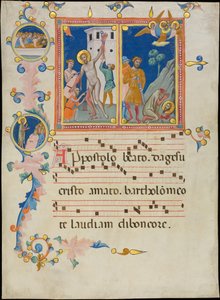 Appostolo beato da gesu
cristo amato. bartholomeo
te laudiam di bon core.